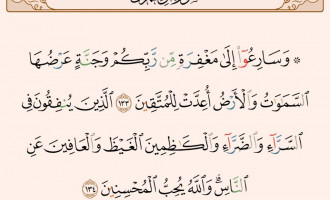 ۞ وَسَارِعُوٓاْ إِلَىٰ مَغْفِرَةٍ مِّن رَّبِّكُمْ وَجَنَّةٍ عَرْضُهَا
ٱلسَّمَٰوَٰتُ وَٱلْأَرْضُ أُعِدَّتْ لِلْمُتَّقِينَ ١٣٣ ٱلَّذِينَ يُنفِقُونَ فِى
ٱلسَّرَّآءِ وَٱلضَّرَّآءِ وَٱلْكَٰظِمِينَ ٱلْغَيْظَ وَٱلْعَافِينَ عَنِ
ٱلنَّاسِۗ وَٱللَّهُ يُحِبُّ ٱلْمُحْسِنِينَ ١٣٤